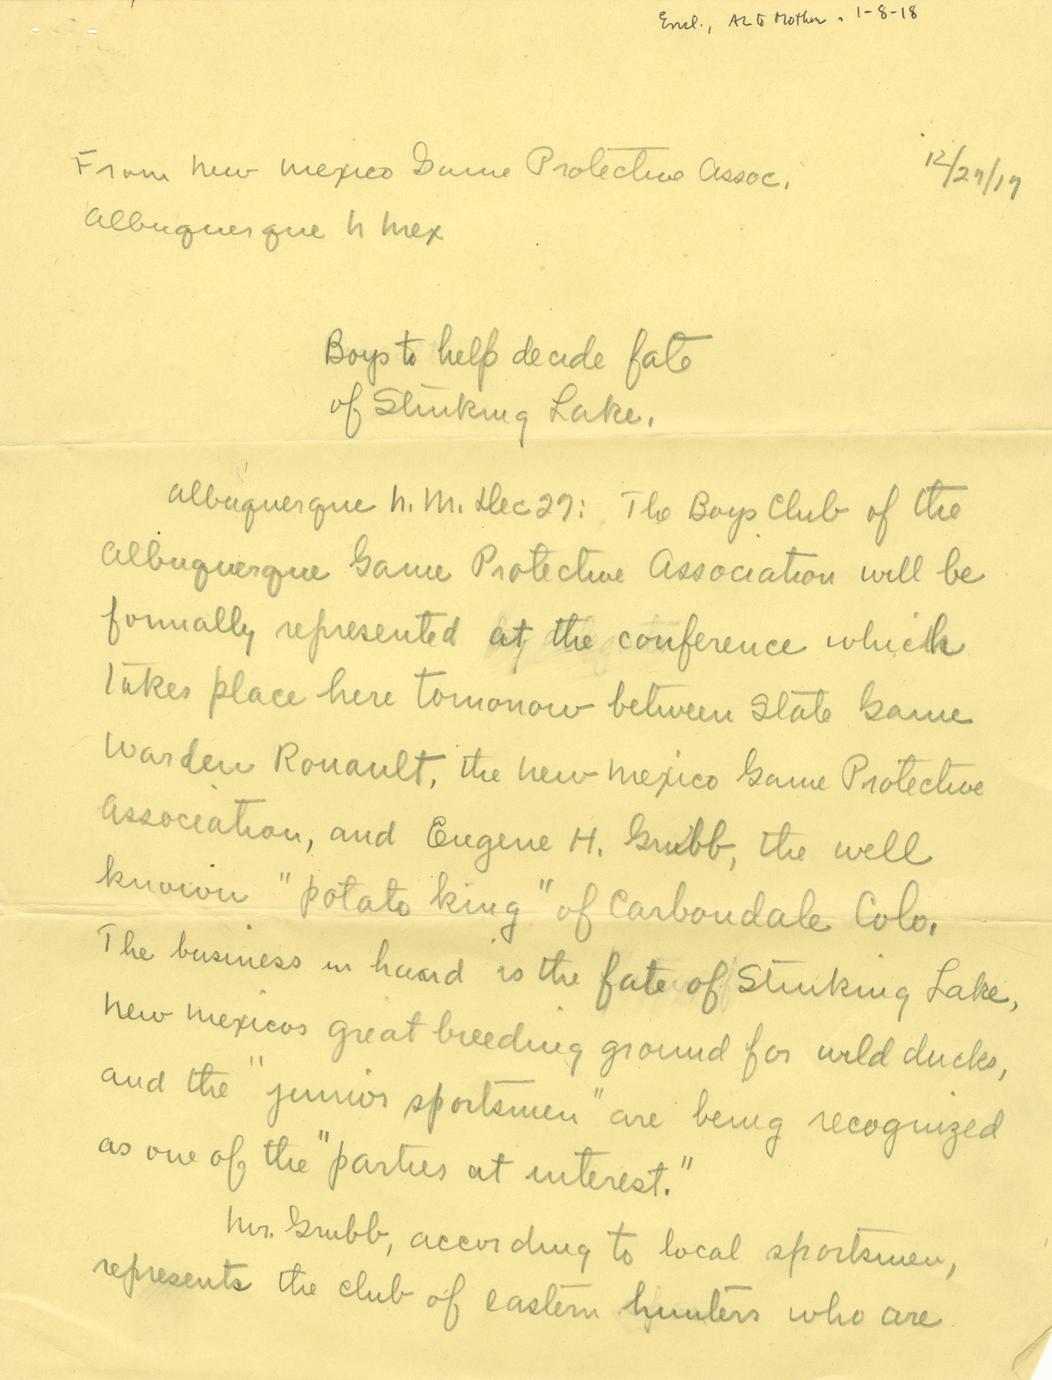 Encl., AL to Mother. 1-8-18
From New Mexico Game Protective Assoc.
12/27/17
Albuquerque N Mex
Boys to help decide fate
of Stinking Lake.
Albuquerque N. M. Dec 27: The Boys Club of the
Albuquerque Game Protective Association will be
formally represented at the conference which
takes place here tomorrow between State Game
Warden Rouault, the New Mexico Game Protective
Association, and Eugene H. Grubb, the well
known "potato king" of Carbondale Colo.
The business in hand is the fate of Stinking Lake,
New Mexicos great breeding ground for wild ducks,
and the "junior sportsmen" are being recognized
as one of the "parties at interest."
Mr. Grubb, according to local sportsmen,
represents the club of eastern hunters who are